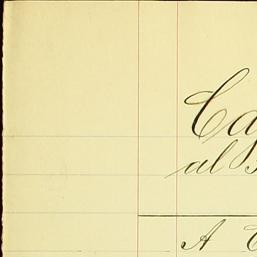 Ca
al
A C